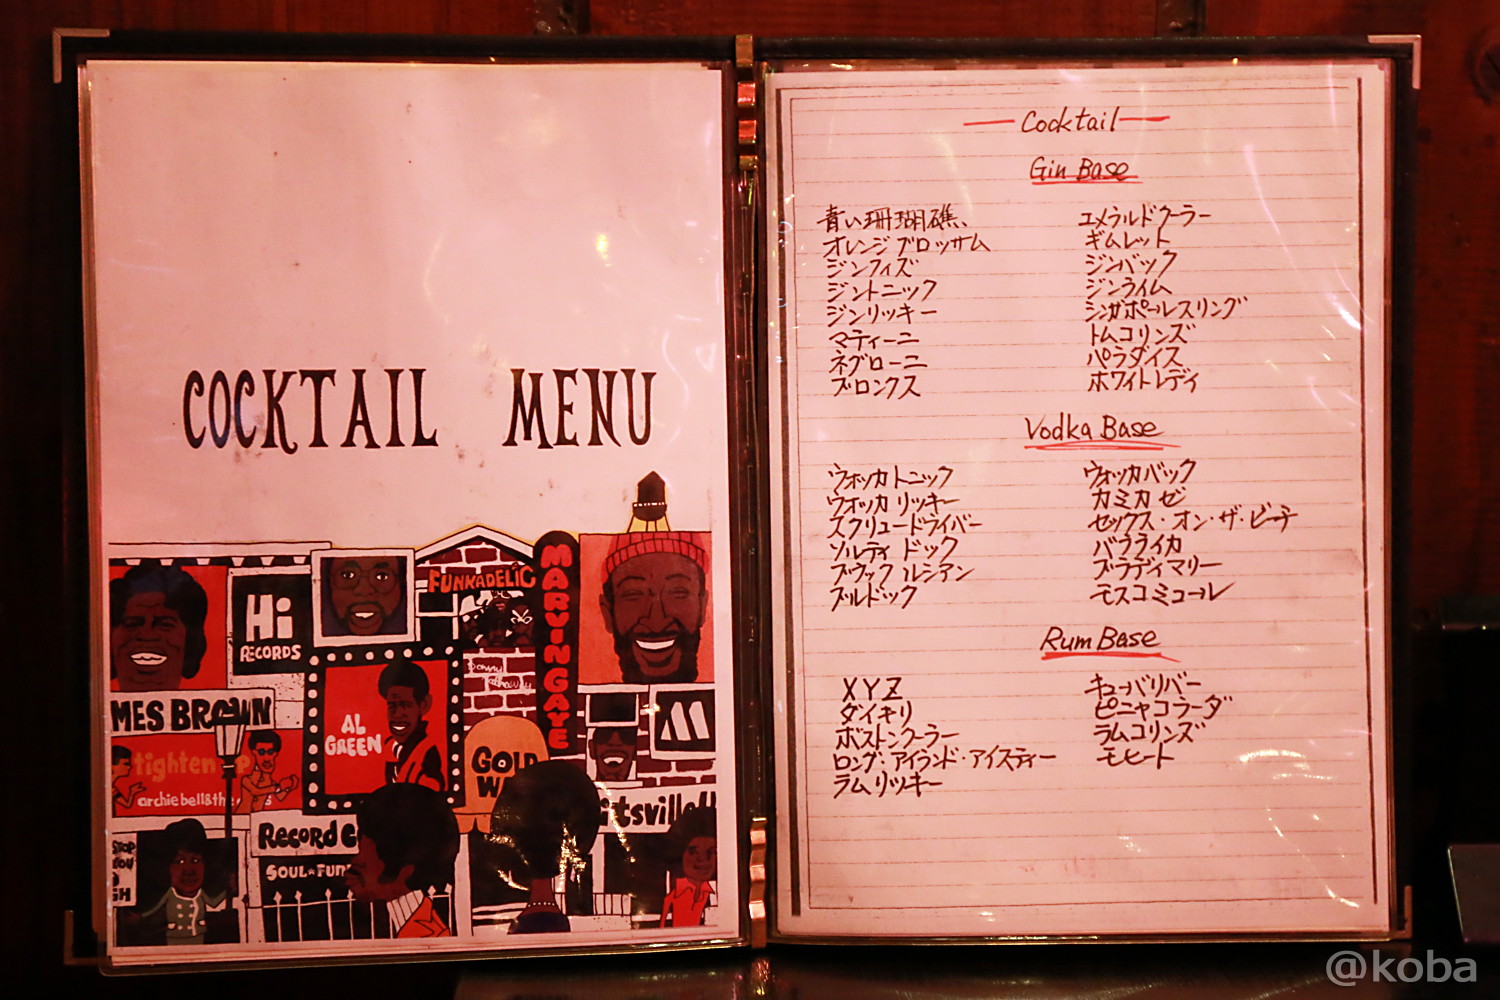 COCKTAIL MENU
FUNKADELIC
MARVIN GAYE
Hi
RECORDS
MES BROWN
AL
GREEN
GOLD
W
tighten P
archie bell & the
itsville
RECORD
SOUL★FUN
STOP
GH
Cocktail
Gin Base
青い珊瑚礁、
オレンジブロッサム
ジンフィズ
ジントニック
ジンリッキー
マティーニ
ネグローニ
ブロンクス
エメラルドクーラー
ギムレット
ジンバック
ジンライム
シンガポールスリング
トムコリンズ
パラダイス
ホワイトレディ
Vodka Base
ウォッカトニック
ウォッカリッキー
スクリュードライバー
ソルティドック
ブラックルシアン
ブルドック
ウォッカバック
カミカゼ
セックス・オン・ザ・ビーチ
バラライカ
ブラディマリー
モスコミュール
Rum Base
XYZ
ダイキリ
ボストンクーラー
ロング・アイランド・アイスティー
ラムリッキー
キューバリバー
ピニャコラーダ
ラムコリンズ
モヒート
@koba